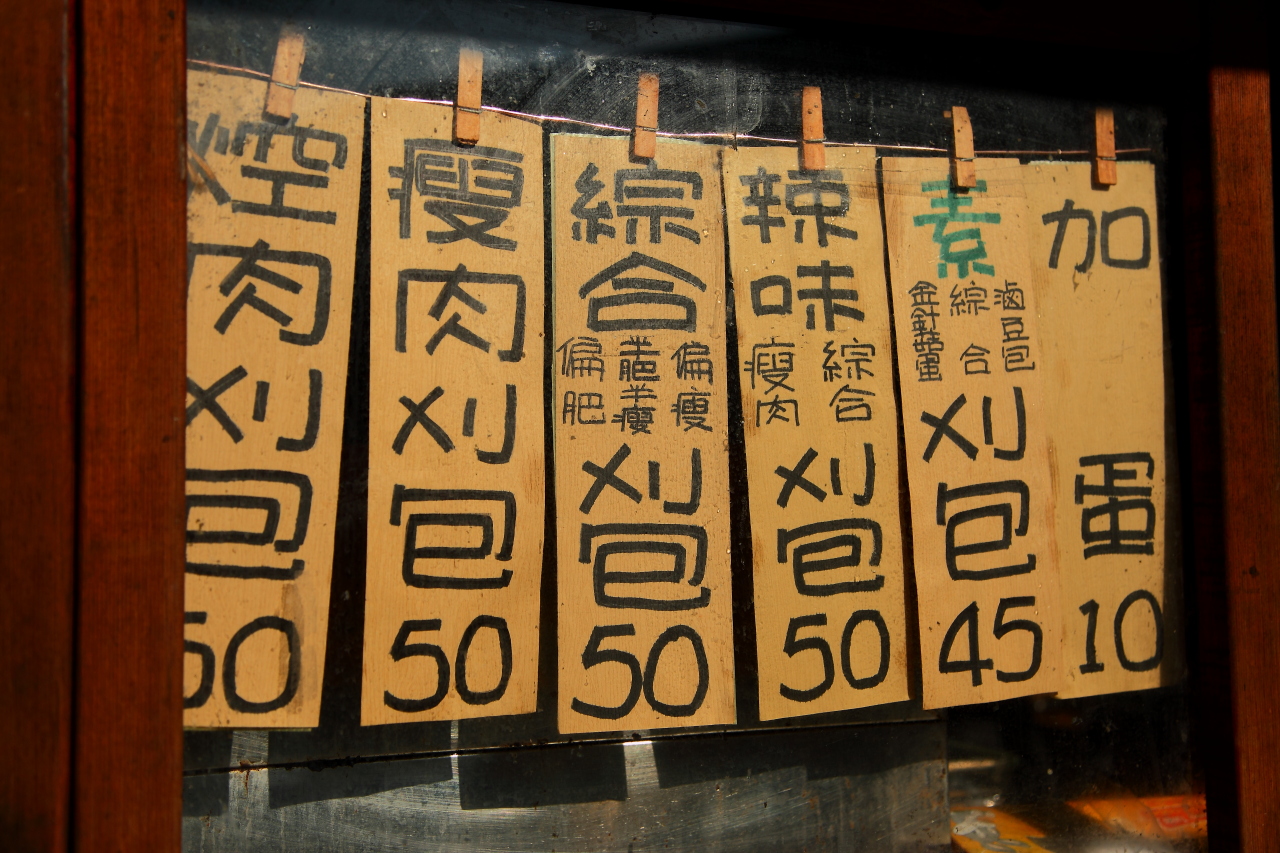 焢肉刈包
50
瘦肉刈包
50
綜合
偏肥
半肥半瘦
偏瘦
刈包
50
辣味
瘦肉
綜合
刈包
50
素
金針菇蛋
綜合
滷豆包
刈包
45
加蛋
10